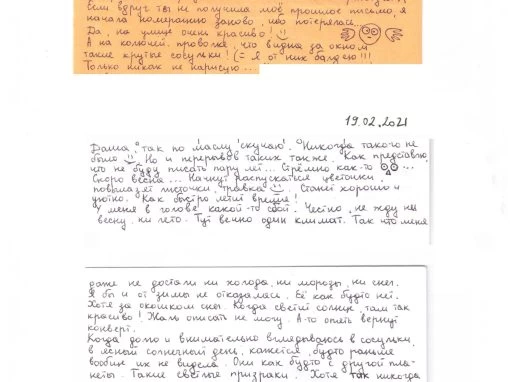 Если вдруг ты не получила моё прошлое письмо, я
начала нумерацию заново, ибо потерялась.
Да, на улице очень красиво!
А на колючей проволке, что видна за окном
такие крутые сосульки! (= Я от них балдею!!!
Только никак не нарисую...
19.02.2021
Даша, так по маслу скучаю. Никогда такого не
было. Но и перерывов таких также. Как представлю,
что не буду писать пару лет... Стрёмно как-то...
Скоро весна... Начнут распускаться цветочки,
повылазят листочки, травка. Станет хорошо и
уютно. Как быстро летит время!
У меня в голове какой-то сбой. Честно, не жду ни
весну, ни лето. Тут вечно один климат. Так что меня
даже не достали ни холода, ни морозы, ни снег.
Я бы и от зимы не отказалась. Её как будто нет.
Хотя за окошком снег. Когда светит солнце, там так
красиво! Жаль описать не могу. А-то опять вернут
конверт.
Когда долго и внимательно вглядываюсь в сосульки,
в ясный солнечный день, кажется, будто раньше
вообще их не видела. Они как будто с другой пла-
неты. Такие светлые призраки. Хотя так никогда